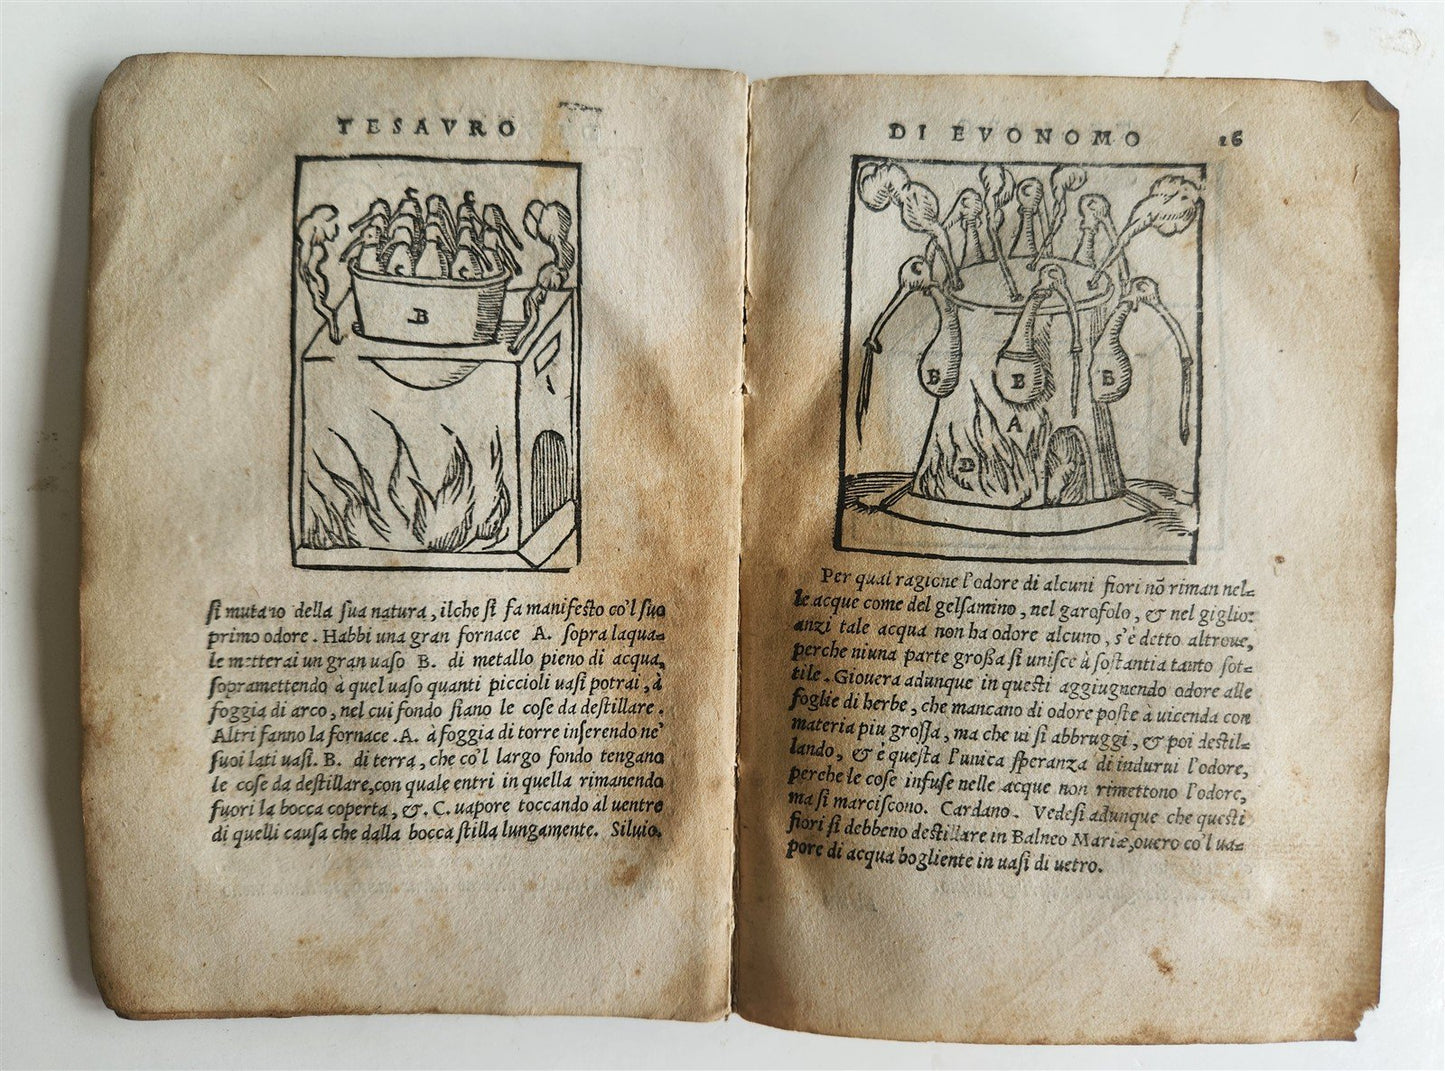 TESAVRO
B
ſi mutaro della ſua natura, ilche ſi fa manifeſto co'l ſuo
primo odore. Habbi una gran fornace A. ſopra laqua=
le metterai un gran uaſo B. di metallo pieno di acqua,
ſopramettendo à quel uaſo quanti piccioli uaſi potrai, à
foggia di arco, nel cui fondo ſiano le coſe da deſtillare.
Altri fanno la fornace .A. à foggia di torre inſerendo ne'
ſuoi lati uaſi. B. di terra, che co'l largo fondo tengano
le coſe da deſtillare, con quale entri in quella rimanendo
fuori la bocca coperta, &. C. uapore toccando al uentre
di quelli cauſa che dalla bocca ſtilla lungamente. Siluio.
DI EVONOMO 26
B B B
A
D
Per qual ragione l'odore di alcuni fiori nō riman nel=
le acque come del gelſamino, nel garofolo, & nel giglio:
anzi tale acqua non ha odore alcuno, s'è detto altroue,
perche niuna parte groſſa ſi uniſce à ſoſtantia tanto ſot=
tile. Giouera adunque in queſti aggiugnendo odore alle
foglie di herbe, che mancano di odore poſte à uicenda con
materia piu groſſa, ma che ui ſi abbruggi, & poi deſtil=
lando, & è queſta l'unica ſperanza di indurui l'odore,
perche le coſe infuſe nelle acque non rimettono l'odore,
ma ſi marciſcono. Cardano. Vedeſi adunque che queſti
fiori ſi debbeno deſtillare in Balneo Mariæ, ouero co'l ua=
pore di acqua bogliente in uaſi di uetro.